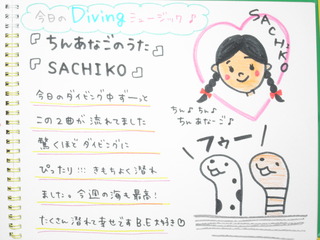 今日のDivingミュージック♪
『ちんあなごのうた』
『SACHIKO』
今日のダイビング中ずーって
この2曲が流れてました
驚くほどダイビングに
ぴったり!!! きもちよく潜れ
ました。今週の海も最高!
たくさん潜れて幸せです B.E大好き
SACHIKO
ちん♪ちん♪
ちんあなーご♪
フゥー!